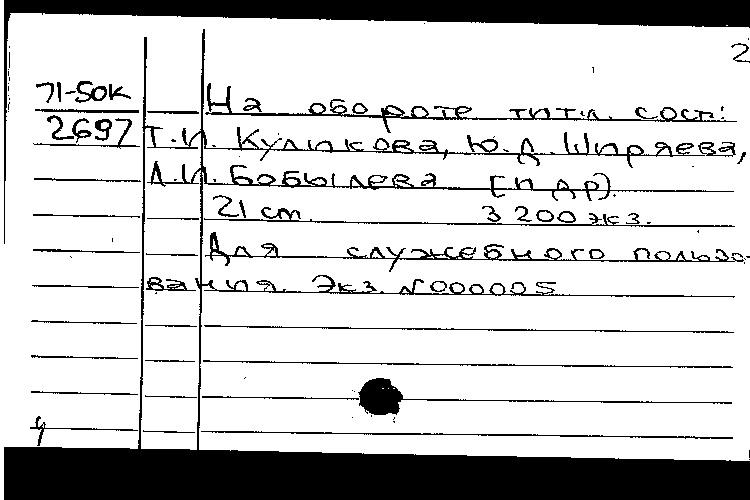 2
71-50к На обороте титл. сост:
2697 Т.И. Куликова, Ю.Д. Ширяева,
Л.И. Бобылева [и др).
21 cm. 3 200 экз.
Для служебного пользо-
вания. Экз. №000005
4